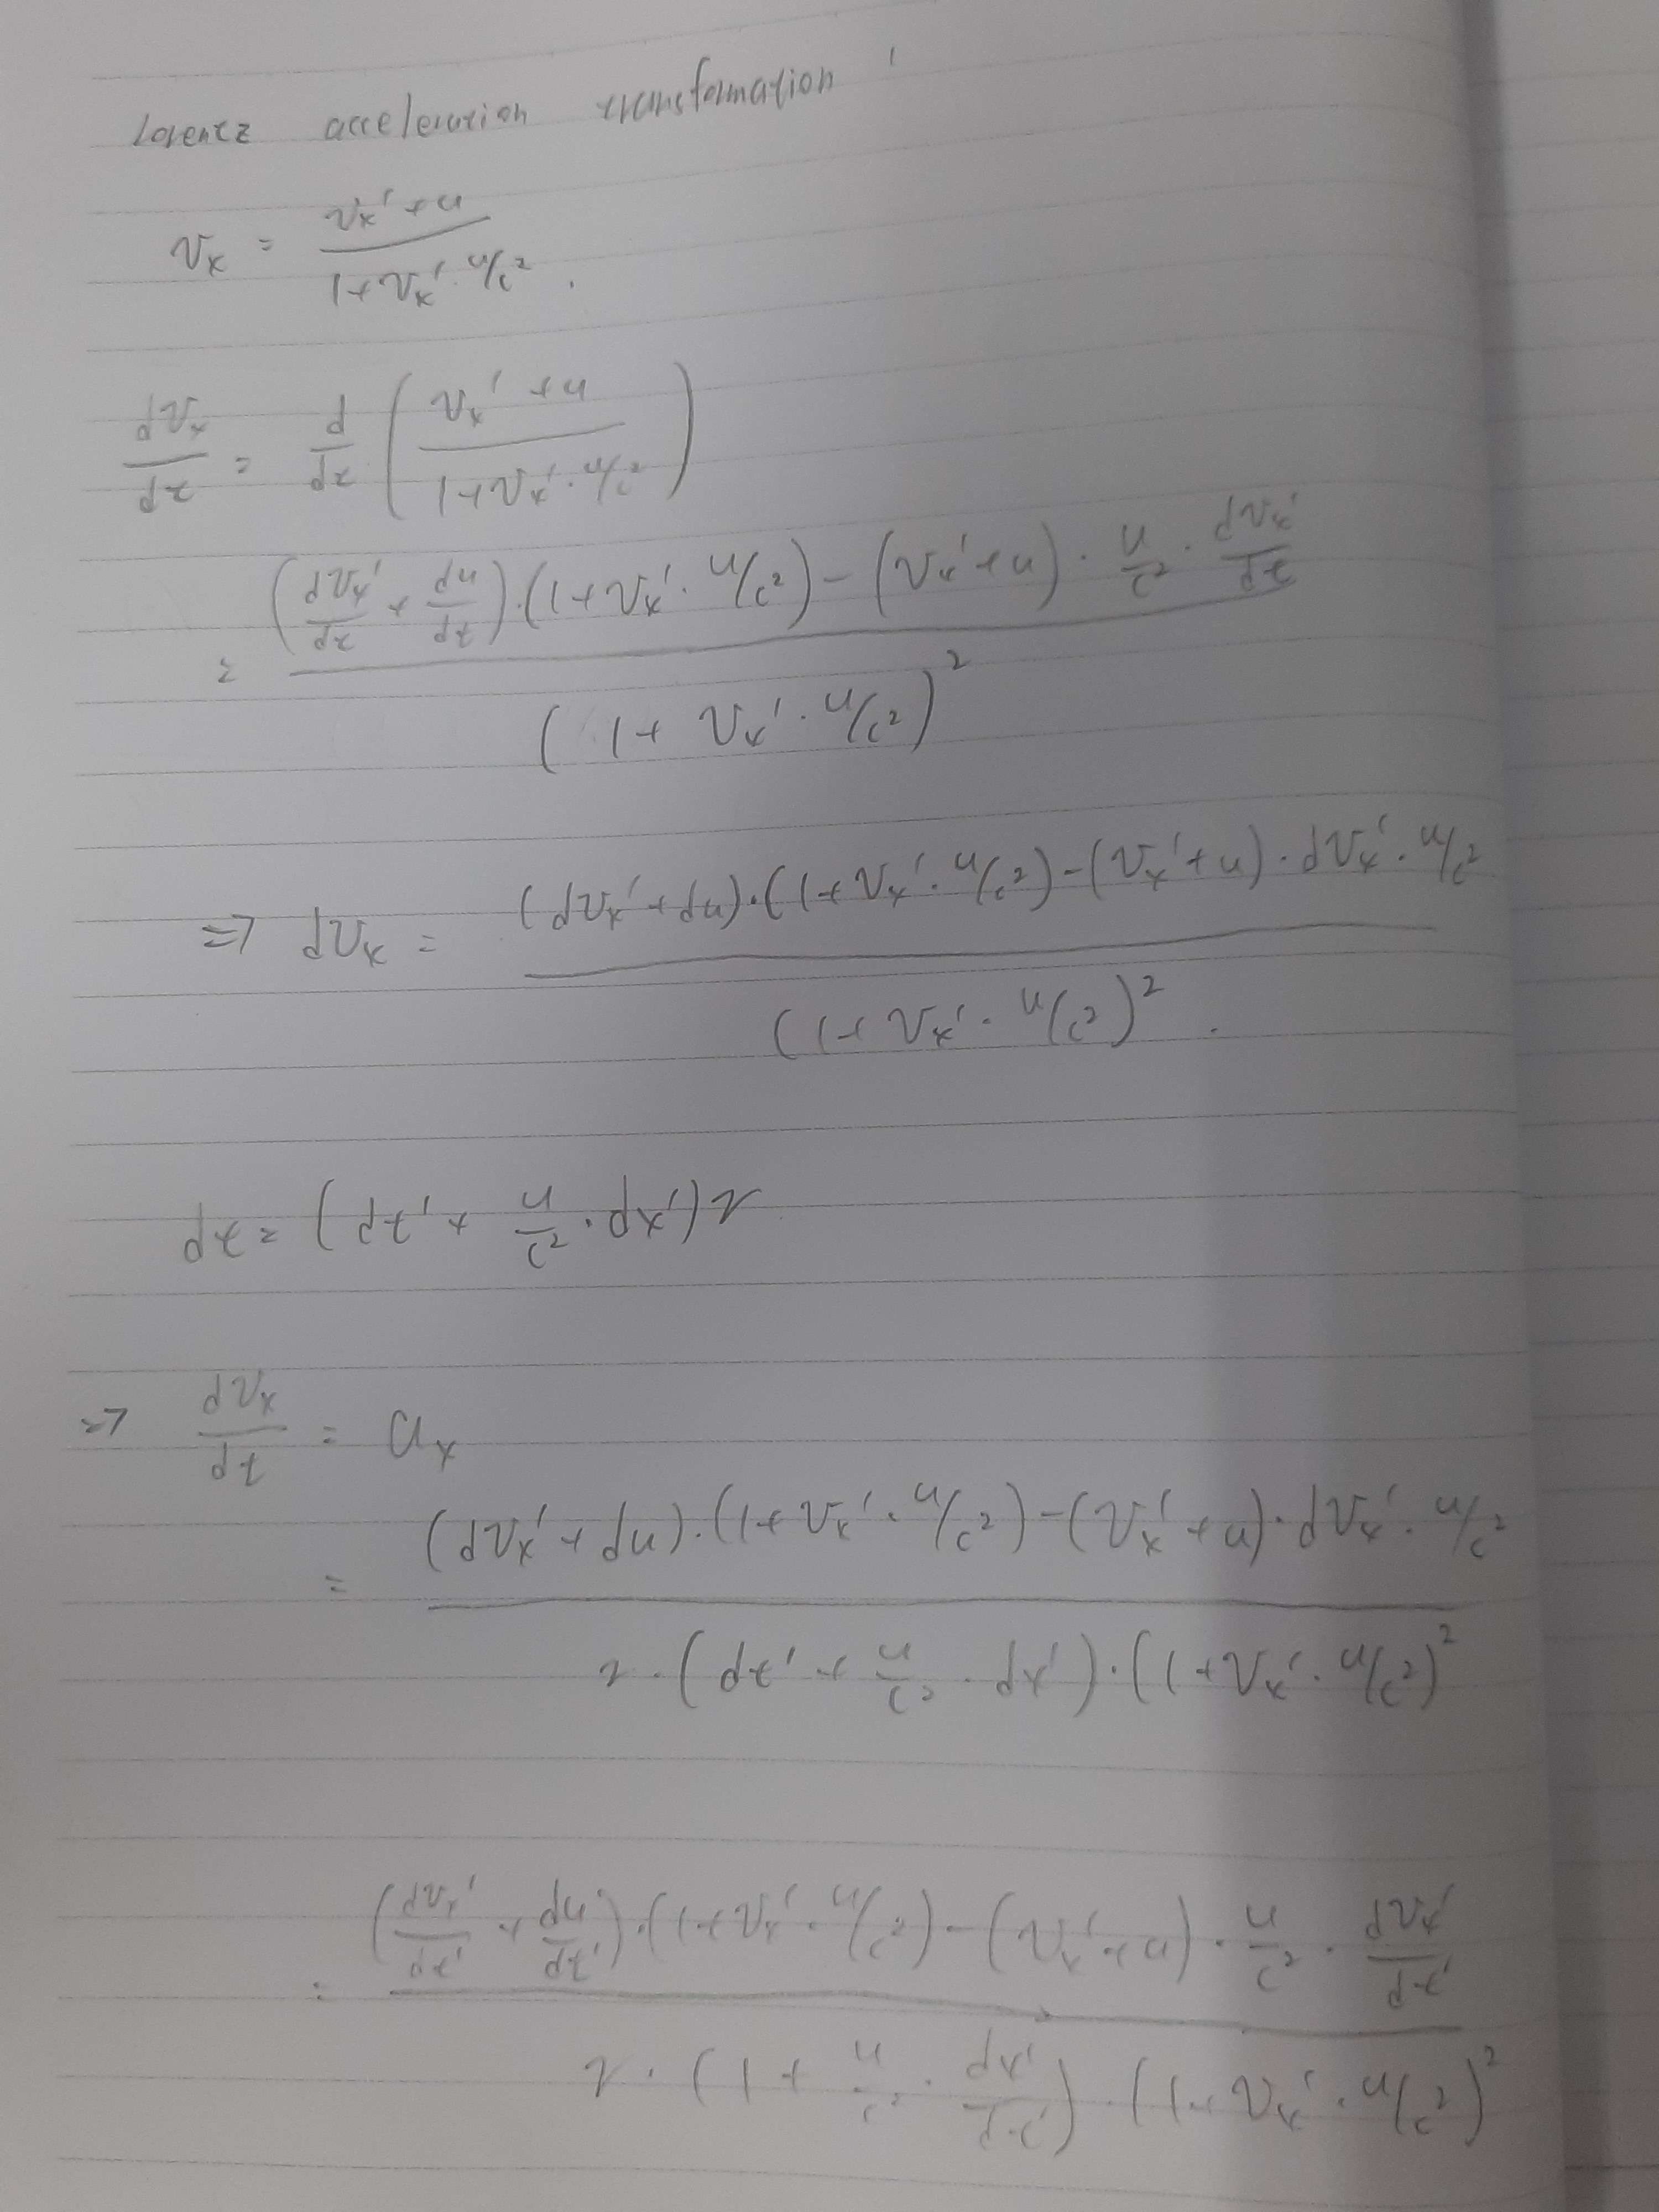 Lorentz acceleration transformation
vₓ = (vₓ' + u) / (1 + vₓ' · u/c²) .
dvₓ/dt = d/dt ( (vₓ' + u) / (1 + vₓ' · u/c²) )
= ( (dvₓ'/dt + du/dt) · (1 + vₓ' · u/c²) − (vₓ' + u) · u/c² · dvₓ'/dt ) / (1 + vₓ' · u/c²)²
⇒ dvₓ = ( (dvₓ' + du) · (1 + vₓ' · u/c²) − (vₓ' + u) · dvₓ' · u/c² ) / (1 + vₓ' · u/c²)² .
dt = (dt' + u/c² · dx') γ
⇒ dvₓ/dt = aₓ
= ( (dvₓ' + du) · (1 + vₓ' · u/c²) − (vₓ' + u) · dvₓ' · u/c² ) / ( γ · (dt' + u/c² · dx') · (1 + vₓ' · u/c²)² )
= ( (dvₓ'/dt' + du/dt') · (1 + vₓ' · u/c²) − (vₓ' + u) · u/c² · dvₓ'/dt' ) / ( γ · (1 + u/c² · dx'/dt') · (1 + vₓ' · u/c²)² )